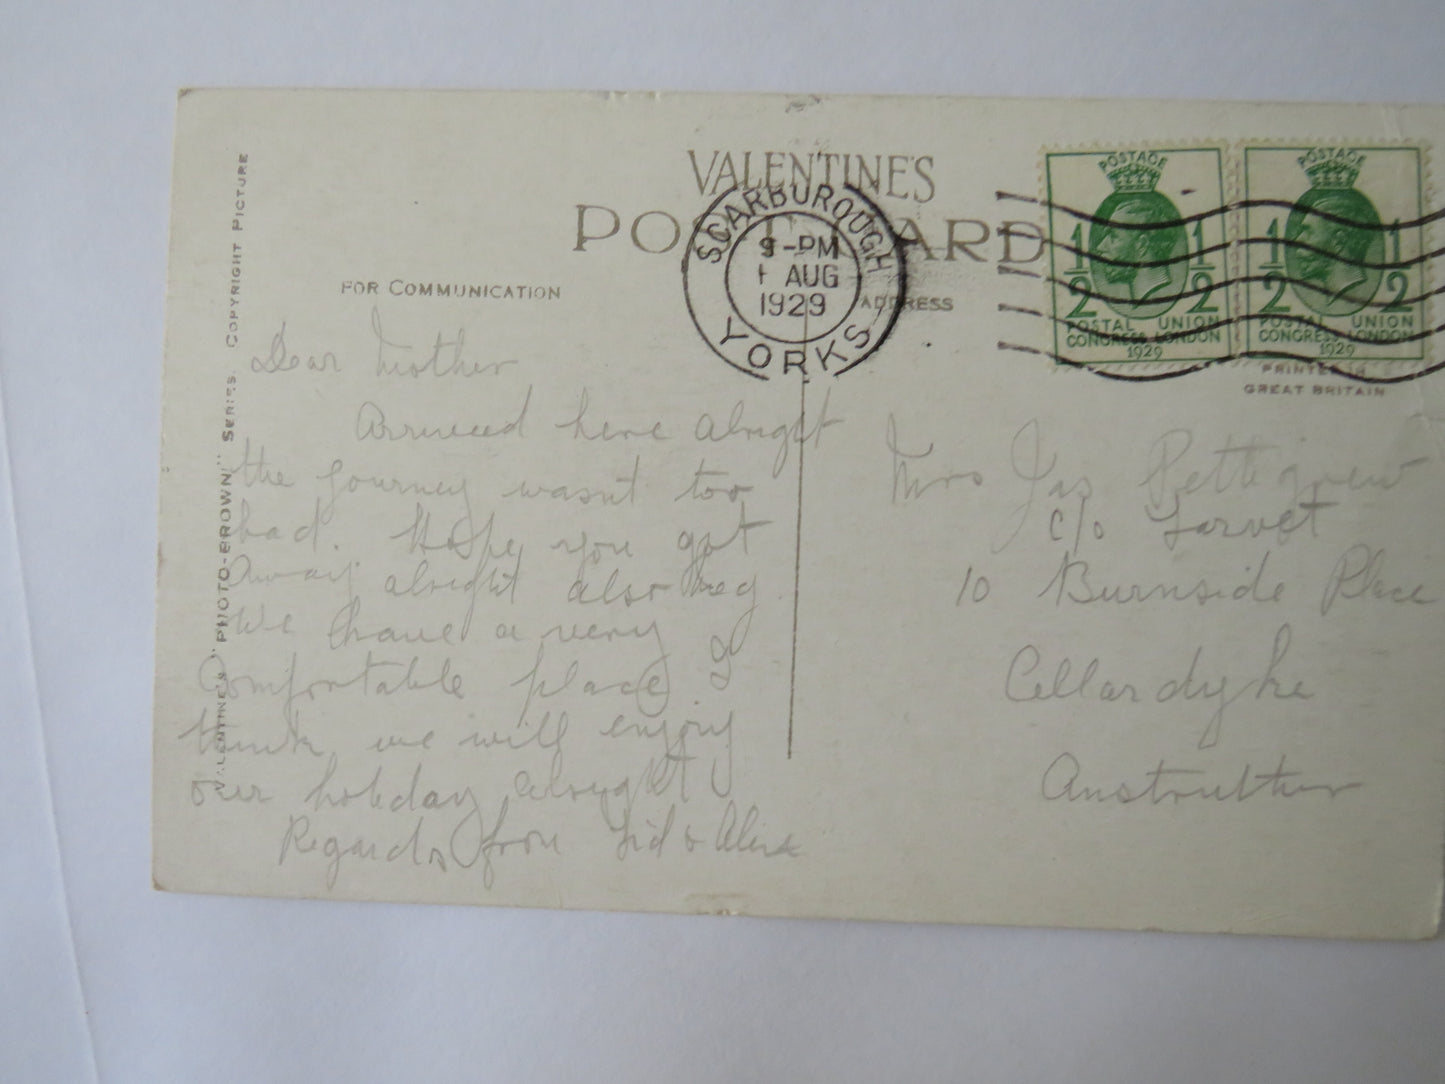 VALENTINE'S
POST CARD
FOR COMMUNICATION
ADDRESS
SCARBOROUGH
9-PM
1 AUG
1929
YORKS
POSTAGE
1/2 1/2
POSTAL UNION
CONGRESS LONDON
1929
POSTAGE
1/2 1/2
POSTAL UNION
CONGRESS LONDON
1929
PRINTED IN
GREAT BRITAIN
VALENTINE'S "PHOTO-BROWN" SERIES. COPYRIGHT PICTURE
Dear Mother
Arrived here alright
the journey wasnt too
bad. Hope you got
away alright also
We have a very
comfortable place I
think we will enjoy
our holiday alright
Regards from & 
Mrs Jas Pettigrew
c/o Tarvet
10 Burnside Place
Cellardyke
Anstruther